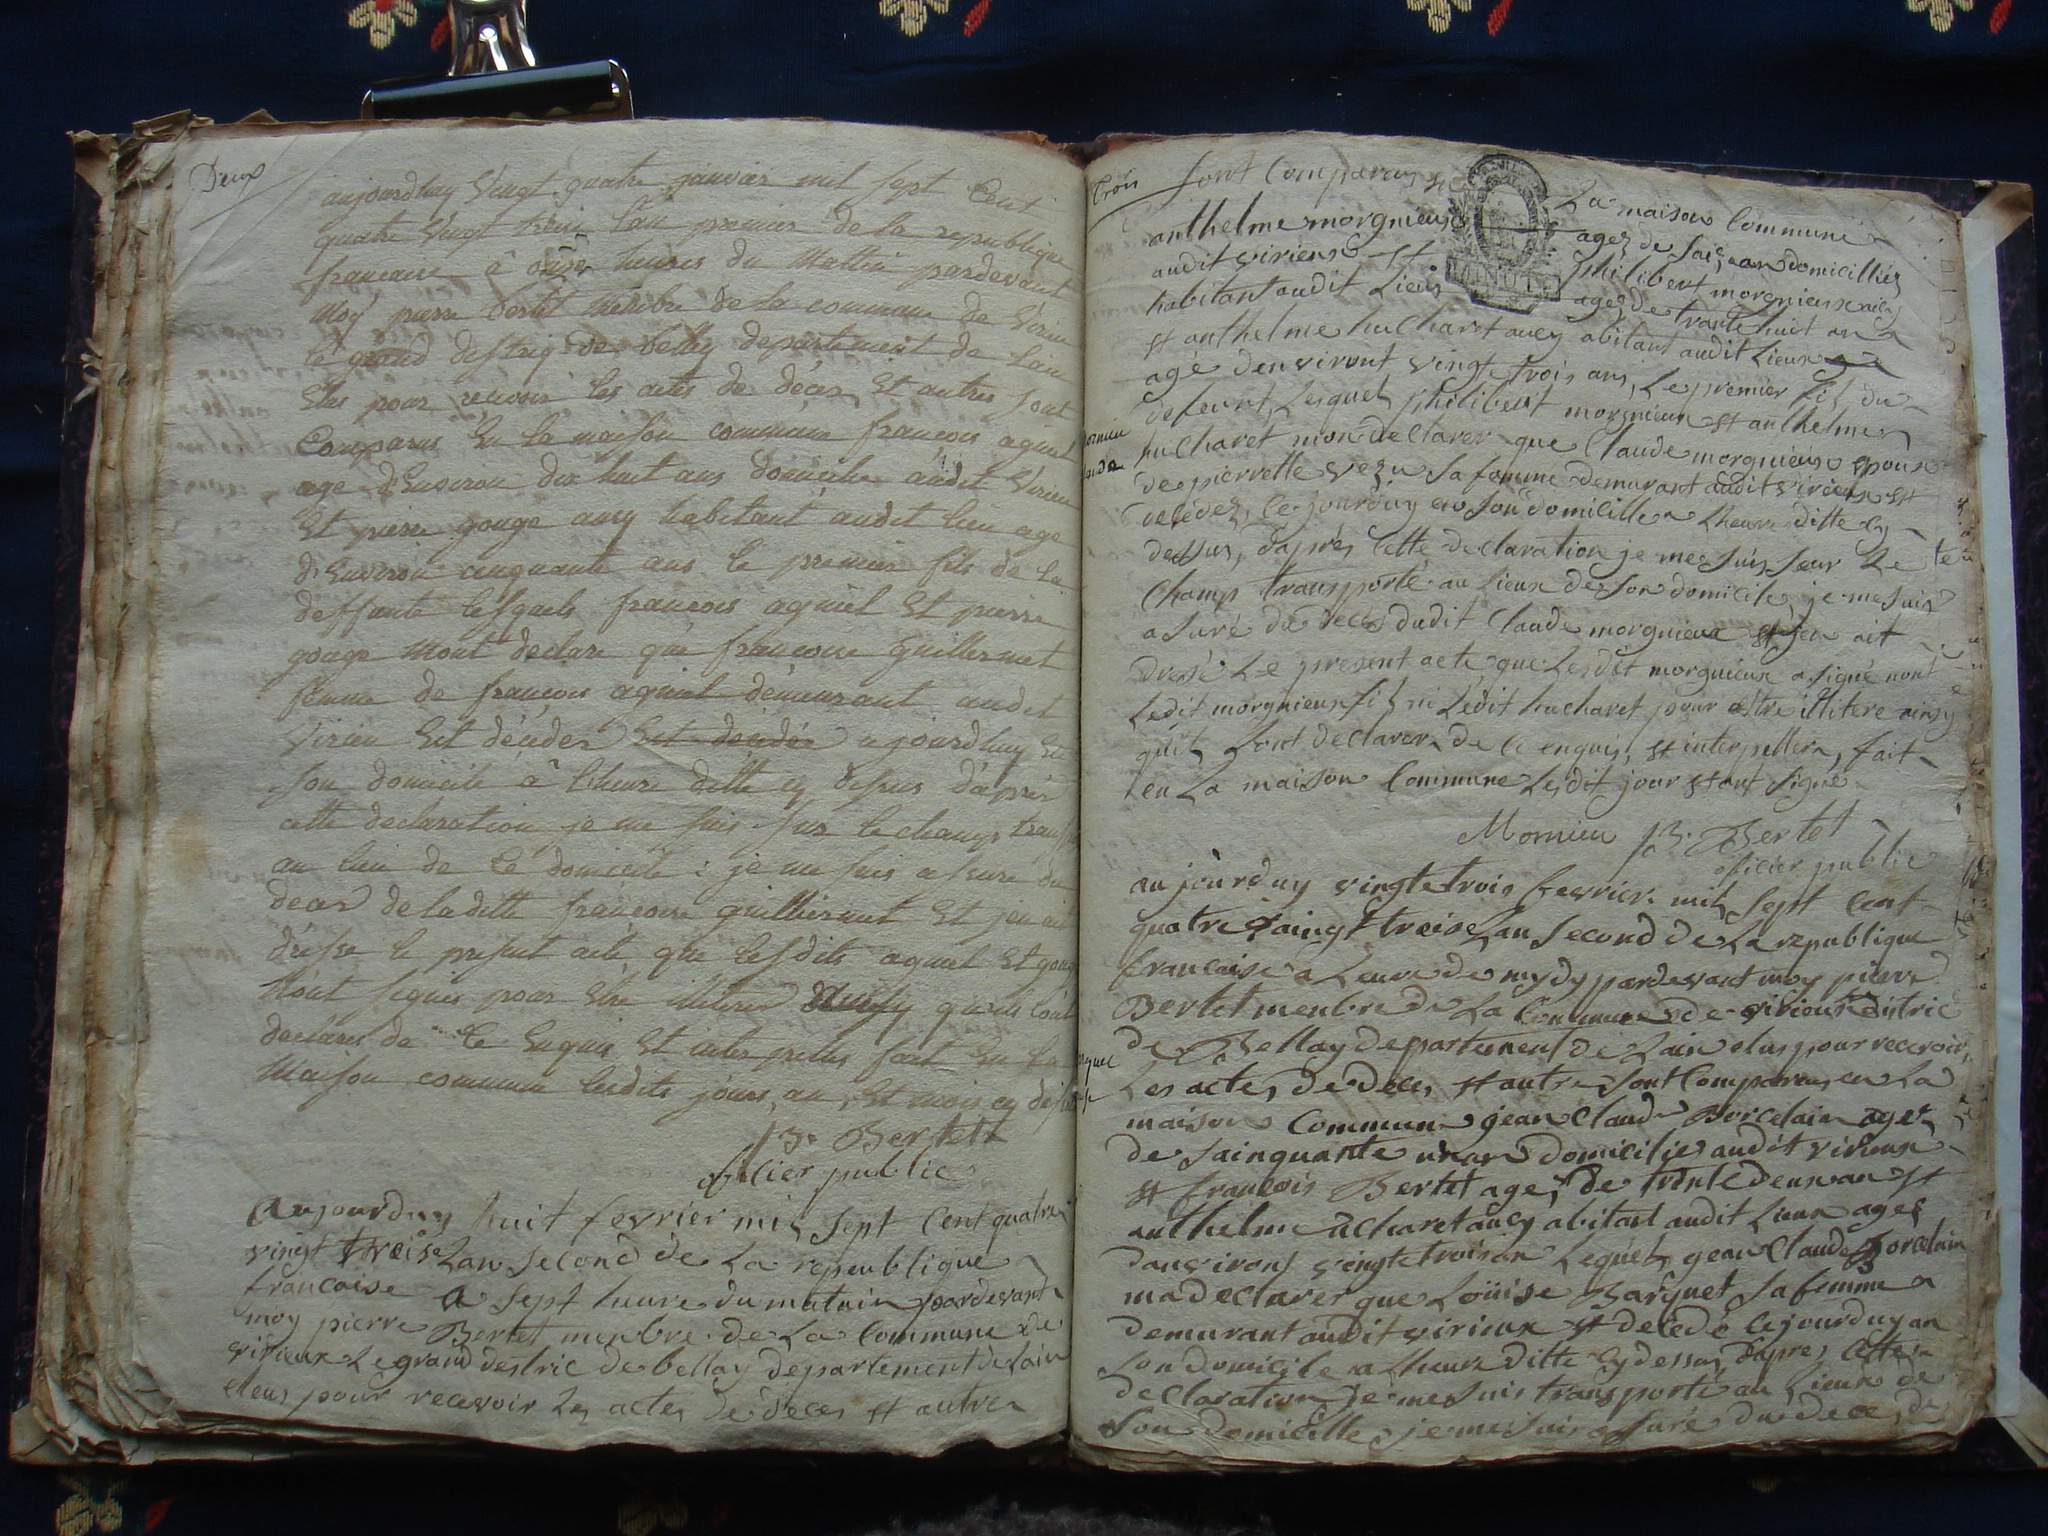 Deux
aujourdhuy vingt quatre janvier mil sept Cent
quatre vingt treize lan premier de la republique
francoise à onze heures du Mattin pardevant
Moy pierre Bertet Membre de la commune de Virieu
le grand destrig de belley departement de lain
Elus pour recevoir les actes de déces Et autres sont
Comparus En la maison commune françois aquiet
age d'Environ dix huit ans domicilie audit Virieu
Et pierre gouge aucy habitant audit lieu age
d'Environ cinquante ans le premier fils de la
deffunte lesquels francois aquiet Et pierre
gouge Mont declare que francoise guillermet
femme de françois aquiet demeurant audit
Virieu Est décédée Est décédée aujourdhuy En
son domicile à lheure ditte cy desus d'aprés
cette declaration je me suis sur le champs transp
au lieu de Ce domicile : je me suis assure du
deces de laditte francoise guillermet Et jen ait
dresse le present acte que lesdits aquiet Et gouge
N'ont signés pour Etre illiteres quils l'ont
declares de Ce Enquis Et interpelles fait En la
Maison commune lesdits jours, an, Et mois cy desus
P. Bertet
oficier public
Aujourduy huit fevrier mil sept Cent quatre
vingt treise Lan second de La repeublique
francaise a sept heure du matain pardevant
moy pierre Bertet menbre de La Commune de
virieux Le grand destric de bellay departement de Lain
eleus pour recevoir Les actes de déces et autre
trois
sont Comparus en La maison Commune
anthelme morgnieux agez de ans domicilliez
audit virieux et philibert morgnieux aucy
habitant audit Lieux agez de trante huit an
et anthelme hucharet aucy abitant audit Lieux
agé denviront vingt trois ans, Le premier fils du
defeunt, Lesquels philibert morgnieux et anthelme
hucharet mon declarer que Claude morgnieux epoux
de pierrette vezu sa femme demurant audit virieux et
decedez, ce jourduy en son domicille a Lheure ditte cy
dessus, d'aprés cette declaration je me suis seur Le
Champ transporté au Lieux de son domicile, je me suis
asuré du deces dudit Claude morgnieux et jen ait
dressé Le present acte que Lesdit morgnieux a signé nont
Ledit morgnieux fils ni Ledit hucharet pour estre illitere ainsy
quils Lont declarer de ce enquis, et interpeller, fait
en La maison Commune Lesdit jour et ant signe
Mornieu P. Bertet
oficier public
aujourduy vingt trois fevrier mil sept cent
quatre vaingt treise Lan second de La republique
francaise a Leure de mydy pardevant moy pierre
Bertet menbre de La Commune de virieux distric
de Bellay departement de Lain elus pour recevoir
Les actes de deces et autre sont Comparus en La
maison Commune jean Claude Porcelain agez
de sainquante an domicilie audit virieux
et francois Bertet ages de trante deux an et
anthelme ucharet aucy abitant audit Lieux ages
danviront vingt trois an Lequels jean Claude Porcelain
ma declarer que Loüise Barquet sa femme
demurant audit virieux et decedé cejourduy an
son domicile a Lheure ditte cy dessus, d'apres cette
declaration je me suis transporté au Lieux de
son domicille je me suis asuré du deces de